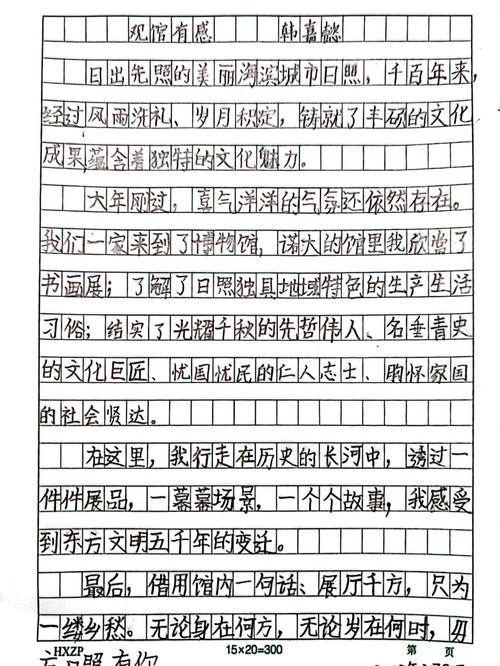 观馆有感 韩嘉懿
日出先照的美丽海滨城市日照，千百年来，
经过风雨洗礼、岁月积淀，铸就了丰硕的文化
成果蕴含着独特的文化魅力。
大年刚过，喜气洋洋的气氛还依然存在。
我们一家来到了博物馆，诺大的馆里我欣赏了
书画展；了解了日照独具地域特色的生产生活
习俗；结实了光耀千秋的先哲伟人、名垂青史
的文化巨匠、忧国忧民的仁人志士、胸怀家国
的社会贤达。
在这里，我行走在历史的长河中，透过一
件件展品，一幕幕场景，一个个故事，我感受
到东方文明五千年的变迁。
最后，借用馆内一句话：展厅千方，只为
一缕乡愁。无论身在何方，无论岁在何时，
HXZP 15×20=300 第 页
日照有你